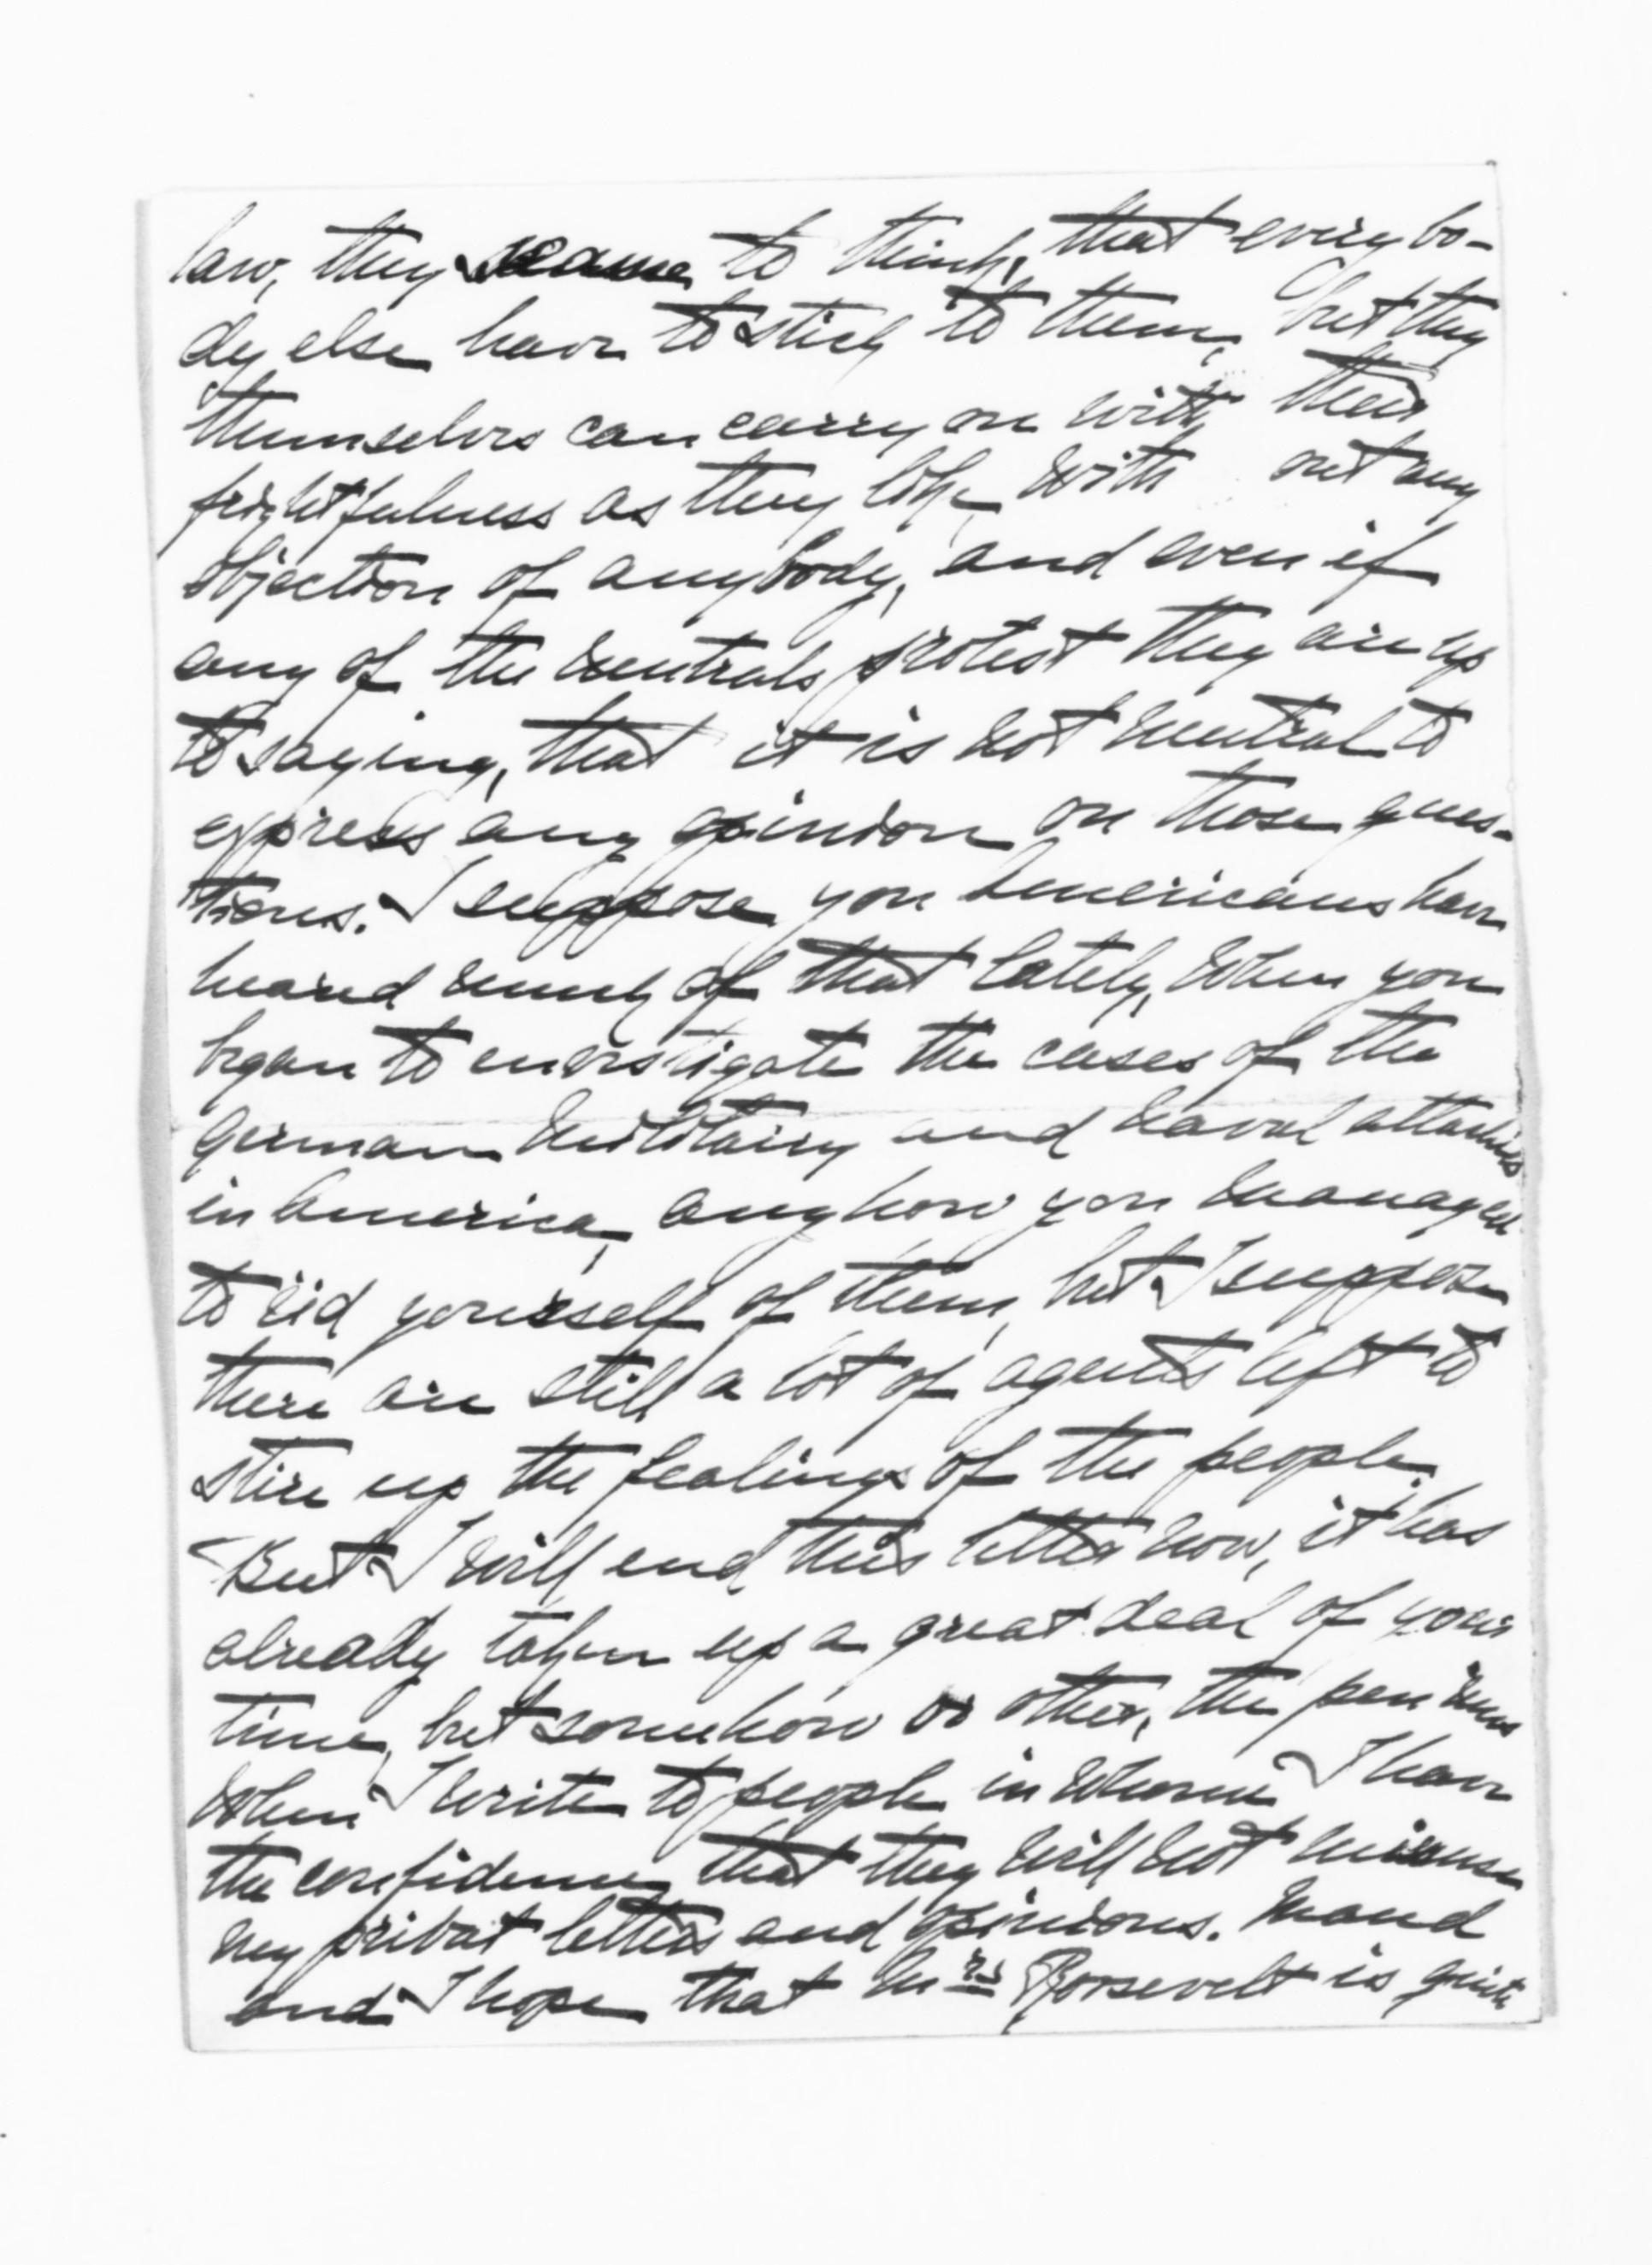 law, they seame to think, that everybo-
dy else have to stick to them, but they
themselves can carry on with their
frightfulness as they like with out any
objection of anybody, and even if
any of the neutrals protest they are up
to saying, that it is not neutral to
express any opinion on those ques-
tions. I suppose you Americans have
heard much of that lately, when you
began to envestigate the cases of the
german militairy and naval attachés
in America, anyhow you managed
to rid yourself of them, but I suppose
there are still a lot of agents left to
stire up the fealings of the people.
But I will end this letter now, it has
already taken up a great deal of your
time, but somehow or other, the pen runs
when I write to people in whom I have
the confidence that they will not misuse
my privat letters and opinions. Maud
and I hope that Mrs Roosevelt is quite